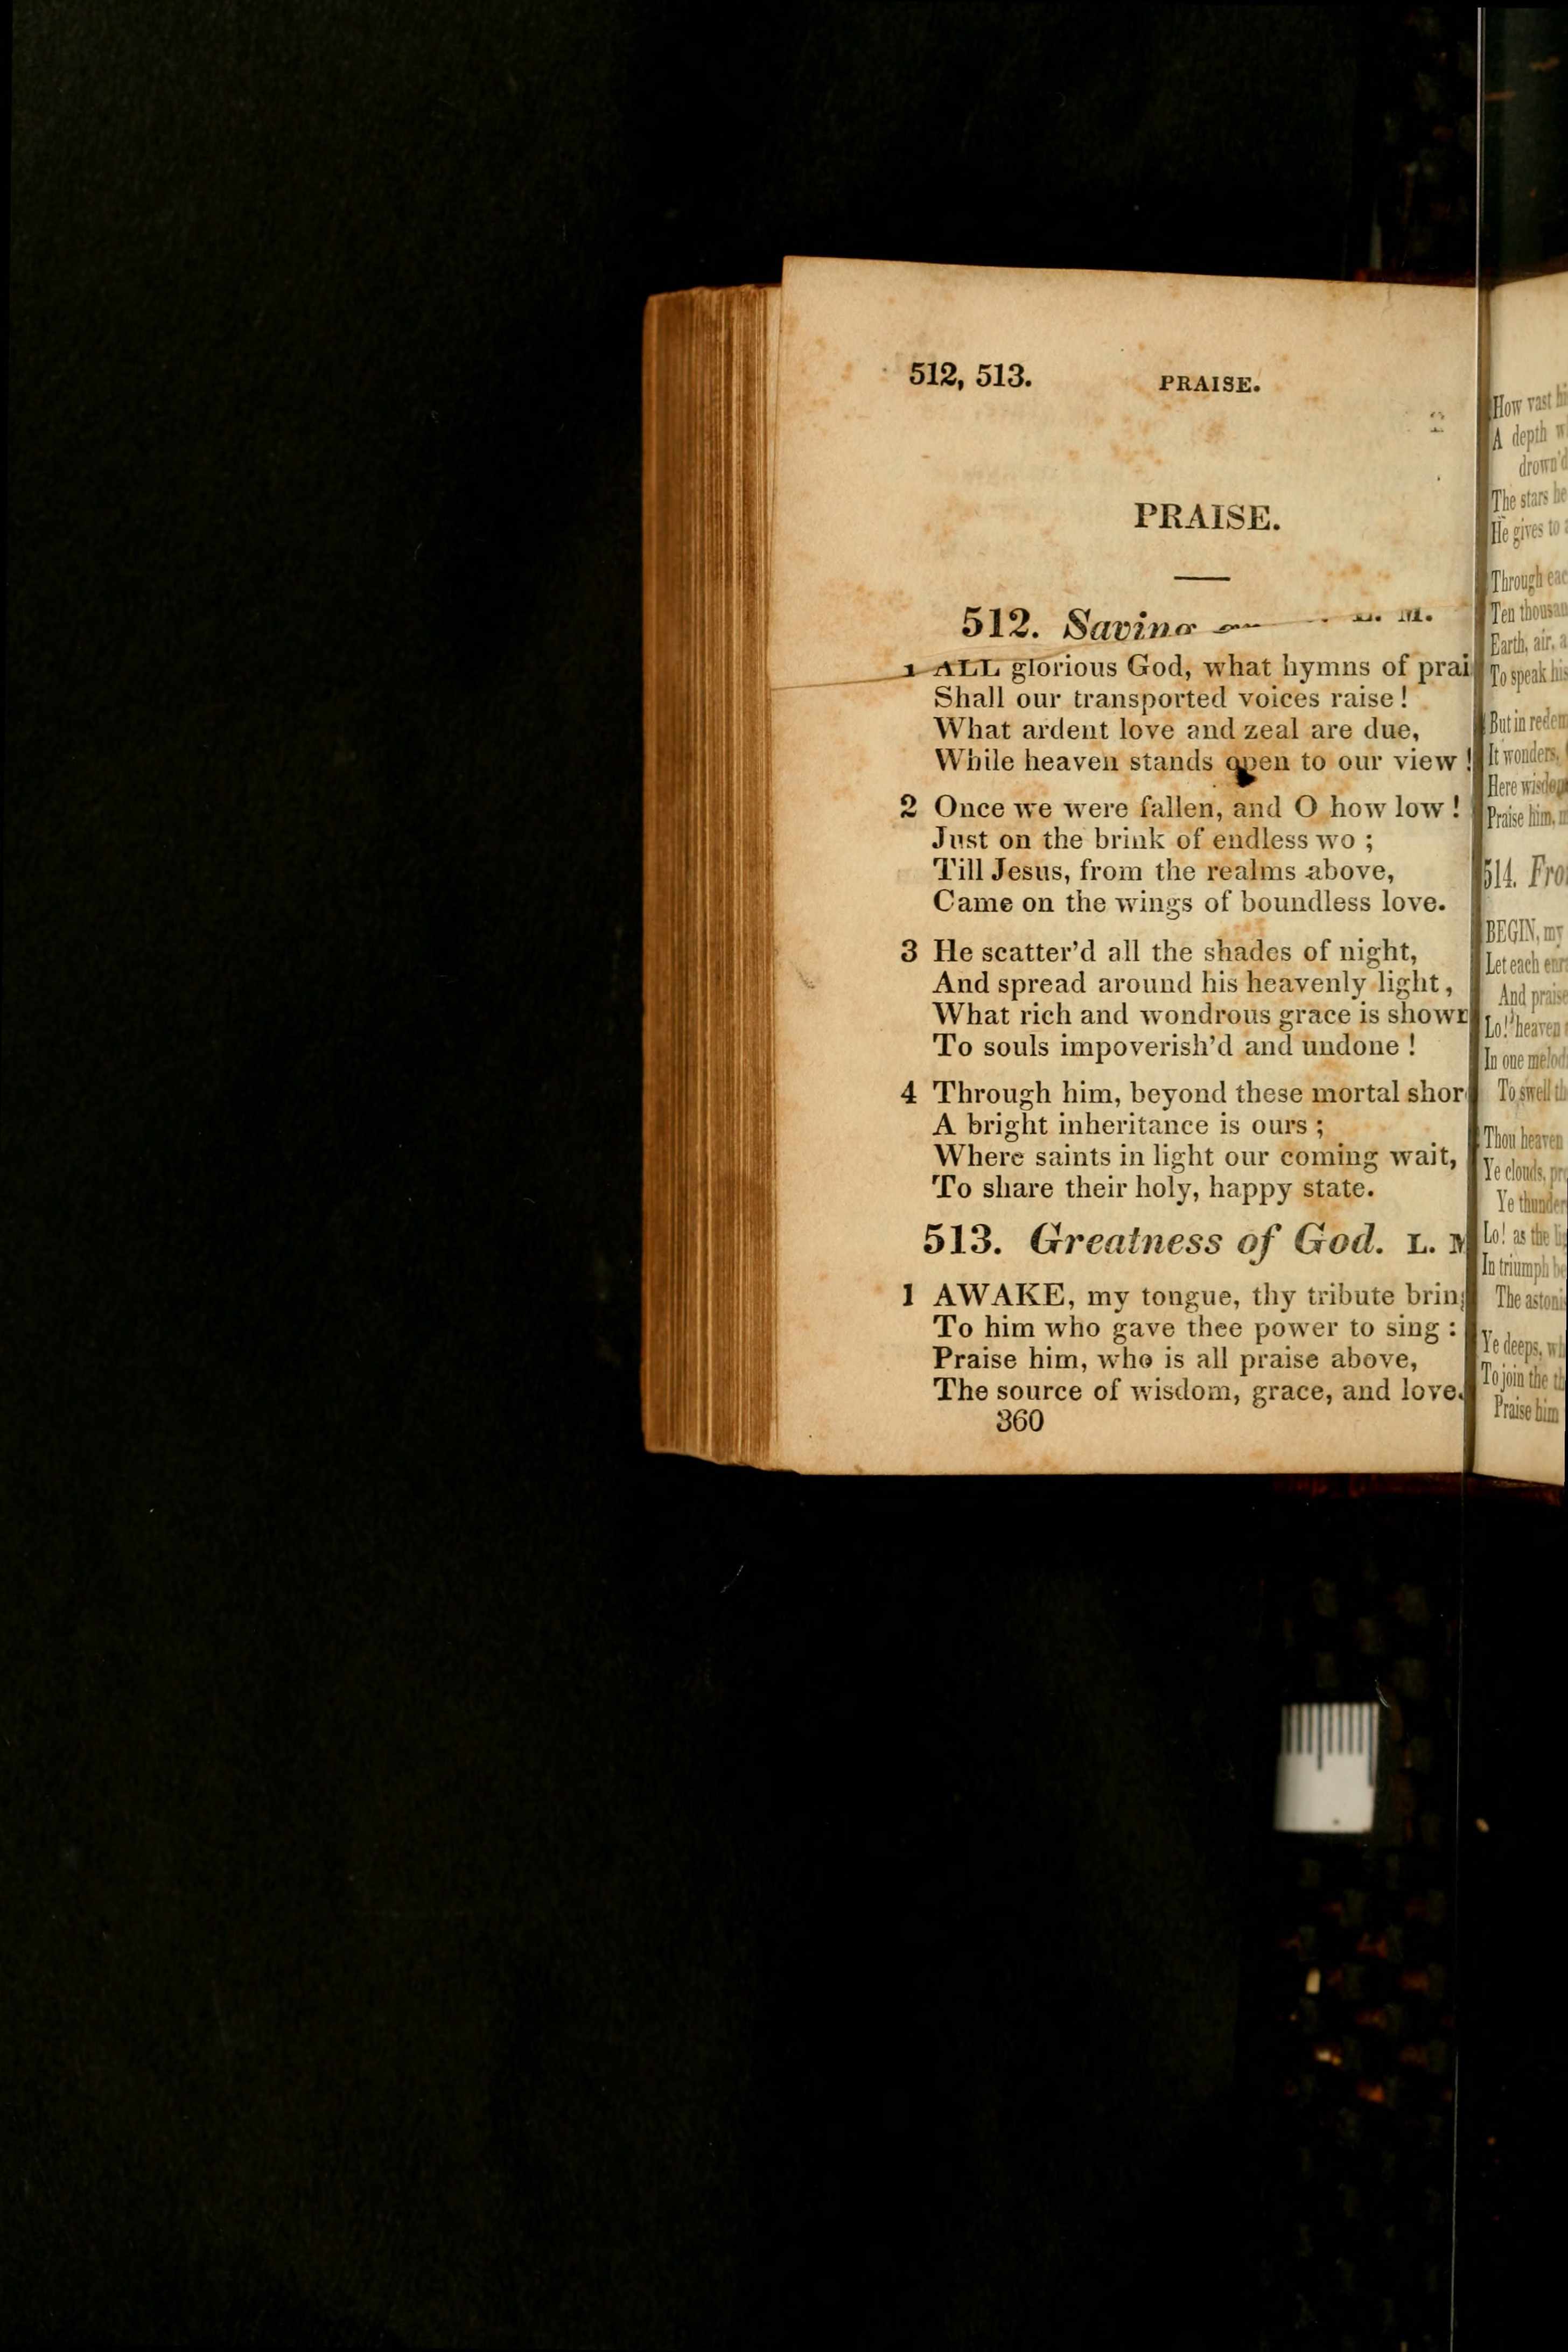 512, 513. PRAISE.
PRAISE.
512. Saving L. M.
1 ALL glorious God, what hymns of prai
Shall our transported voices raise !
What ardent love and zeal are due,
While heaven stands open to our view !
2 Once we were fallen, and O how low !
Just on the brink of endless wo ;
Till Jesus, from the realms above,
Came on the wings of boundless love.
3 He scatter'd all the shades of night,
And spread around his heavenly light,
What rich and wondrous grace is shown
To souls impoverish'd and undone !
4 Through him, beyond these mortal shor
A bright inheritance is ours ;
Where saints in light our coming wait,
To share their holy, happy state.
513. Greatness of God. L. M
1 AWAKE, my tongue, thy tribute bring
To him who gave thee power to sing :
Praise him, who is all praise above,
The source of wisdom, grace, and love.
360
How vast
A depth
drown'd
The stars he
He gives to
Through eac
Ten thousan
Earth, air, a
To speak his
But in redem
It wonders,
Here wisdom
Praise him,
514. Fro
BEGIN, my
Let each enr
And praise
Lo! heaven
In one melod
To swell th
Thou heaven
Ye clouds, pro
Ye thunder
Lo! as the
In triumph be
The astoni
Ye deeps, wh
To join the th
Praise him